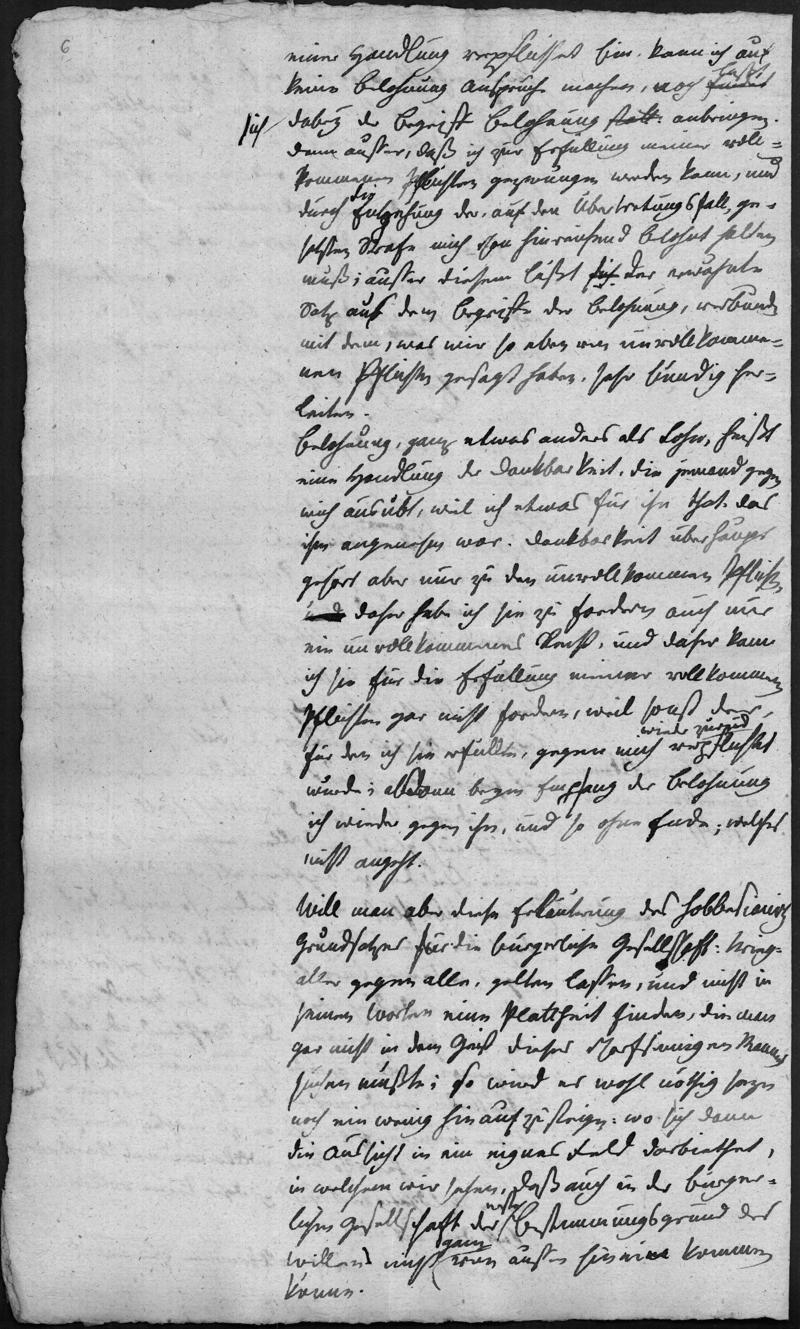 6
einer Handlung verpflichtet bin. kann ich auf
keine Belohnung Ansprüche machen, noch findet läßt
sich
dabey der Begriff Belohnung statt. anbringen.
Denn ausser, daß ich zur Erfüllung meiner voll-
kommenen Pflichten gezwungen werden kann, und
durch die Entgehung der, auf den Übertretungsfall, ge-
setzten Strafe mich schon hinreichend belohnt halten
muß; ausser diesem läßt sich der erwähnte
Satz aus dem Begriffe der Belohnung, verbunden
mit dem, was wir so eben von unvollkomme-
nen Pflichten gesagt haben, sehr bündig her-
leiten.
Belohnung, ganz etwas anders als Lohn, heißt
eine Handlung der Dankbarkeit, die jemand gegen
mich ausübt, weil ich etwas für ihn that, das
ihm angenehm war. Dankbarkeit überhaupt
gehört aber nur zu den unvollkommen Pflichten,
und daher habe ich sie zu fordern auch nur
ein unvollkommenes Recht, und daher kann
ich sie für die Erfüllung meiner vollkommen
Pflichten gar nicht fordern, weil sonst der,
für den ich sie erfüllte, gegen mich wieder zurück verpflichtet
würde; alsdann beym Empfang der Belohnung
ich wieder gegen ihn, und so ohne Ende; welches
nicht angeht.
Will man aber diese Erläuterung des Hobbesianischen
Grundsatzes für die bürgerliche Gesellschaft: Krieg
aller gegen alle, gelten lassen, und nicht in
seinen Worten eine Plattheit finden, die man
gar nicht in dem Geist dieses scharfsinnigen Mannes
suchen müßte; so wird es wohl nöthig seyn
noch ein wenig hinaufzusteigen: wo sich dann
die Aussicht in ein eignes Feld darbiethet,
in welchem wir sehen, daß auch in der bürger-
lichen Gesellschaft der Bestimmungsgrund des
Willens nicht ganz von aussen hinein kommen
könne.